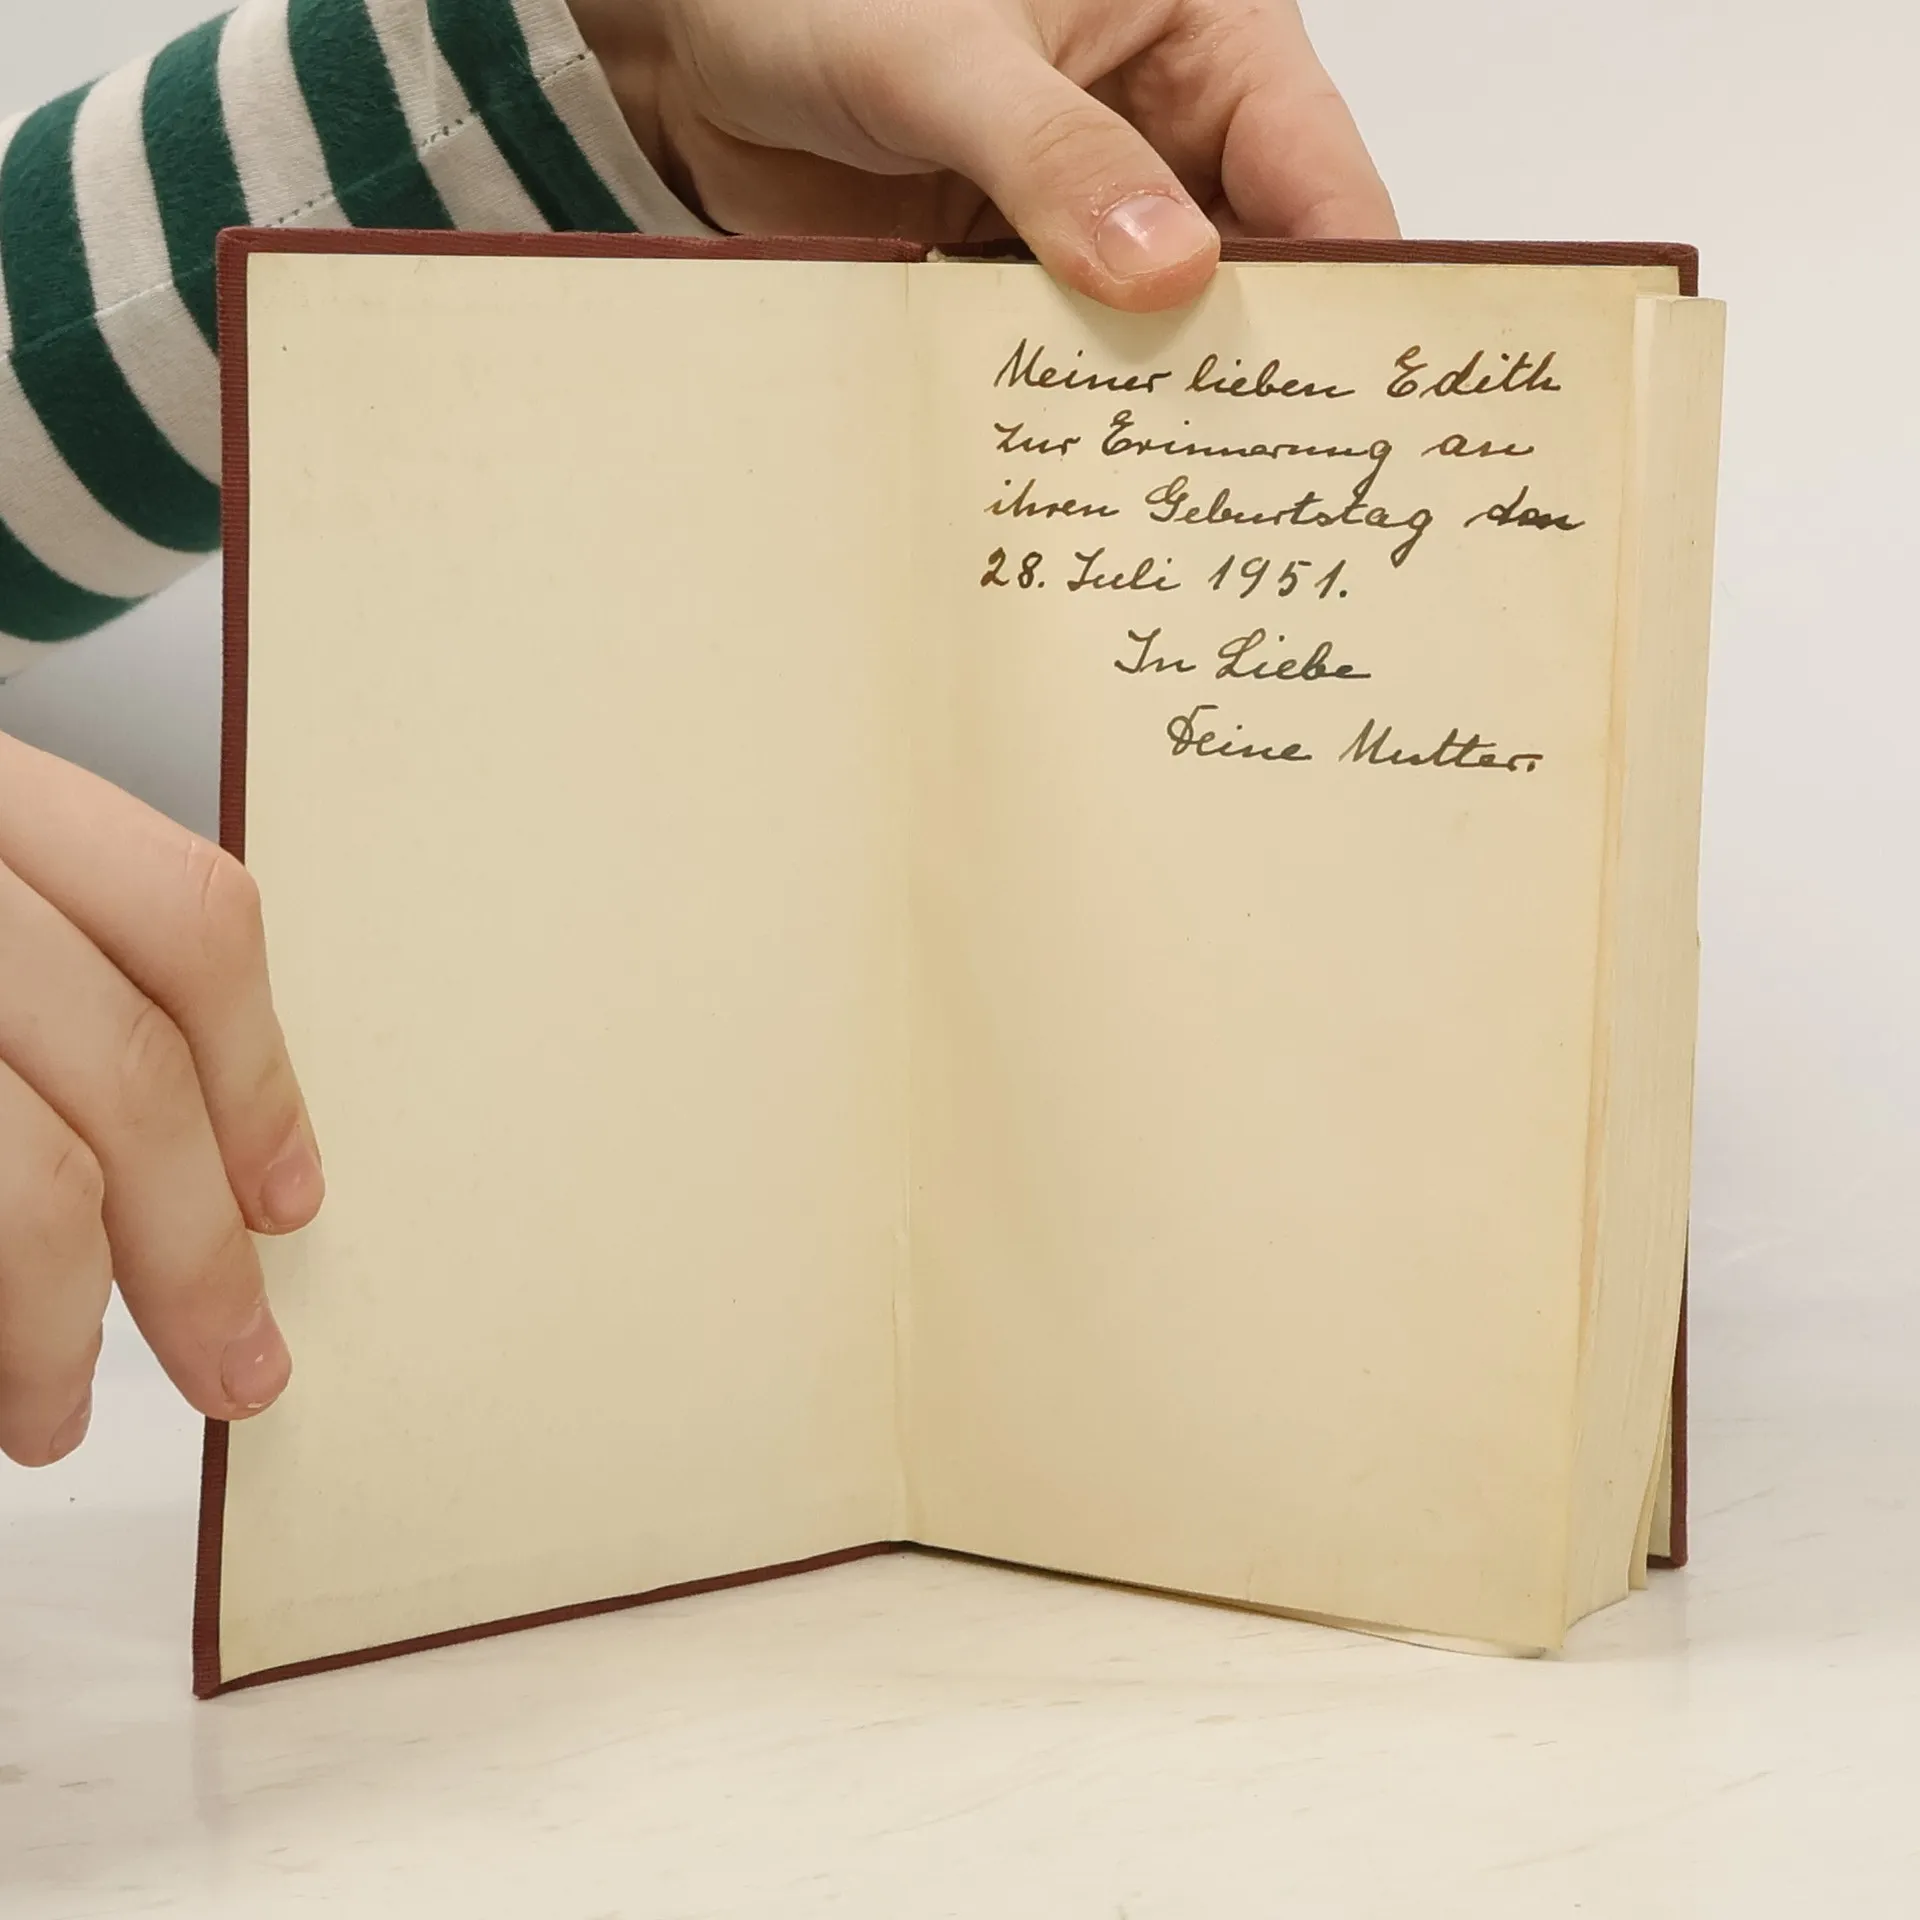 Meiner lieben Edith
zur Erinnerung an
ihren Geburtstag den
28. Juli 1951.
In Liebe
Deine Mutter.